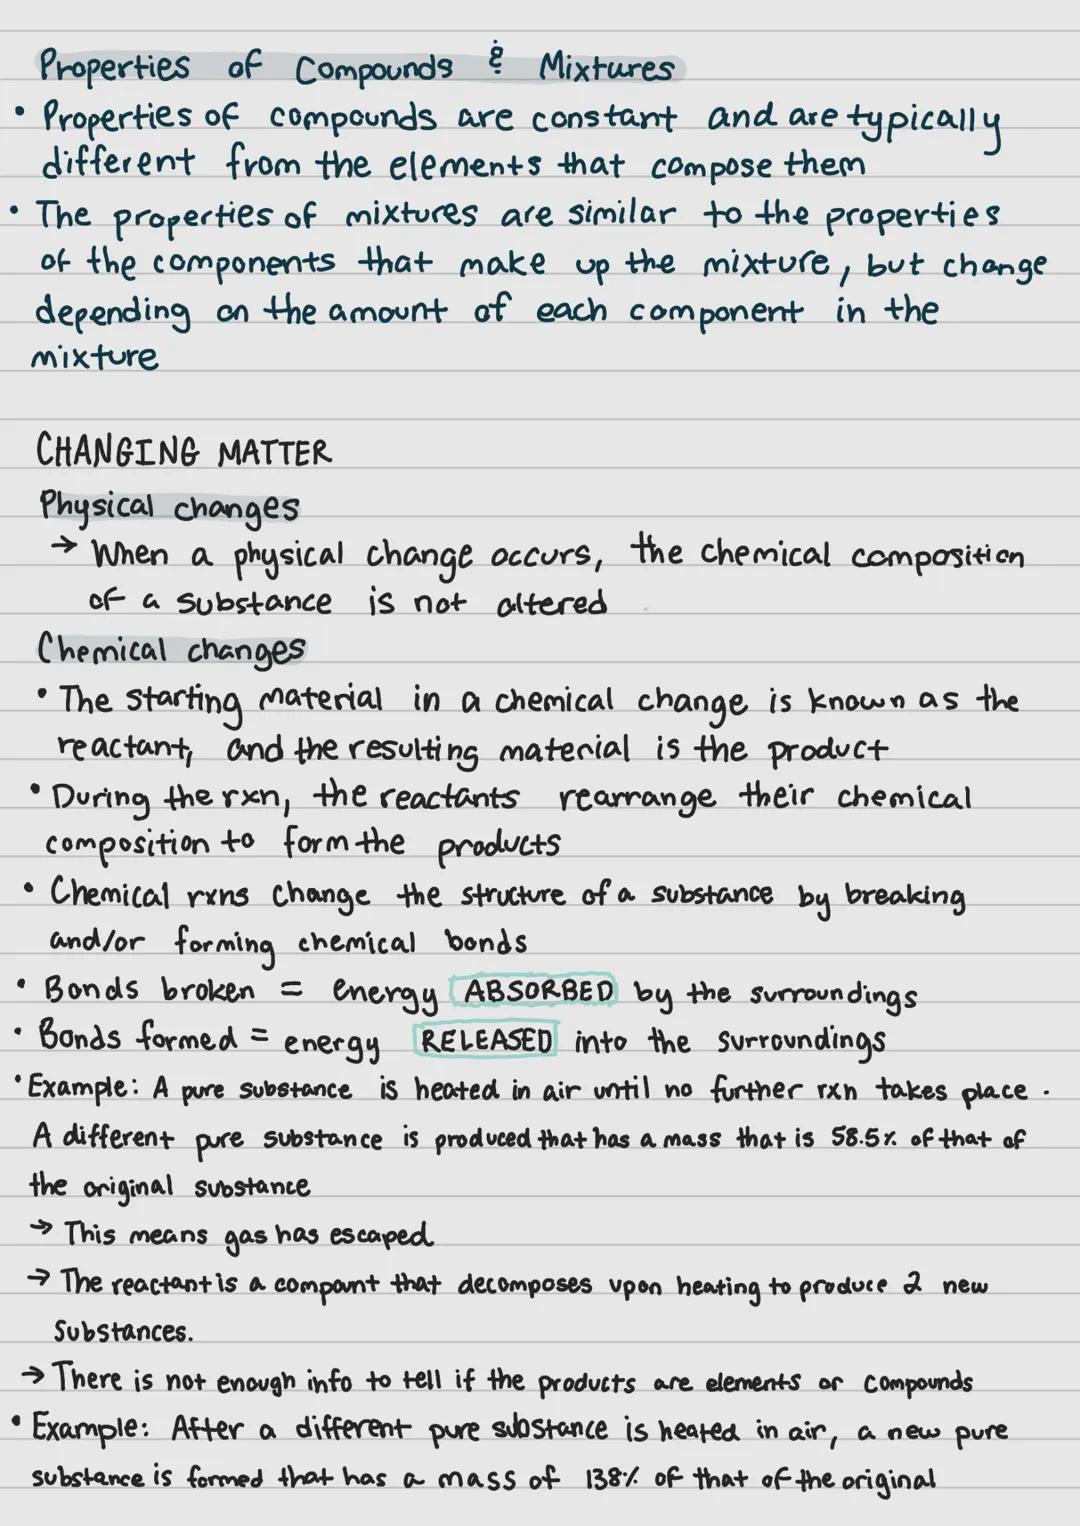 Properties of Compounds & Mixtures
• Properties of compounds are constant and are typically
different from the elements that compose them
• The properties of mixtures are similar to the properties
of the components that make up the mixture, but change
depending on the amount of each component in the
mixture
CHANGING MATTER
Physical changes
→ When a physical change occurs, the chemical composition
of a substance is not altered
Chemical changes
• The starting material in a chemical change is known as the
reactant, and the resulting material is the product
• During the rxn, the reactants rearrange their chemical
composition to form the products
• Chemical rxns change the structure of a substance by breaking
and/or forming chemical bonds
• Bonds broken = energy ABSORBED by the surroundings
• Bonds formed = energy RELEASED into the surroundings
• Example: A pure substance is heated in air until no further rxn takes place.
A different pure substance is produced that has a mass that is 58.5% of that of
the original substance
→ This means gas has escaped
→ The reactant is a compount that decomposes upon heating to produce 2 new
substances.
→ There is not enough info to tell if the products are elements or compounds
• Example: After a different pure substance is heated in air, a new pure
substance is formed that has a mass of 138% of that of the original